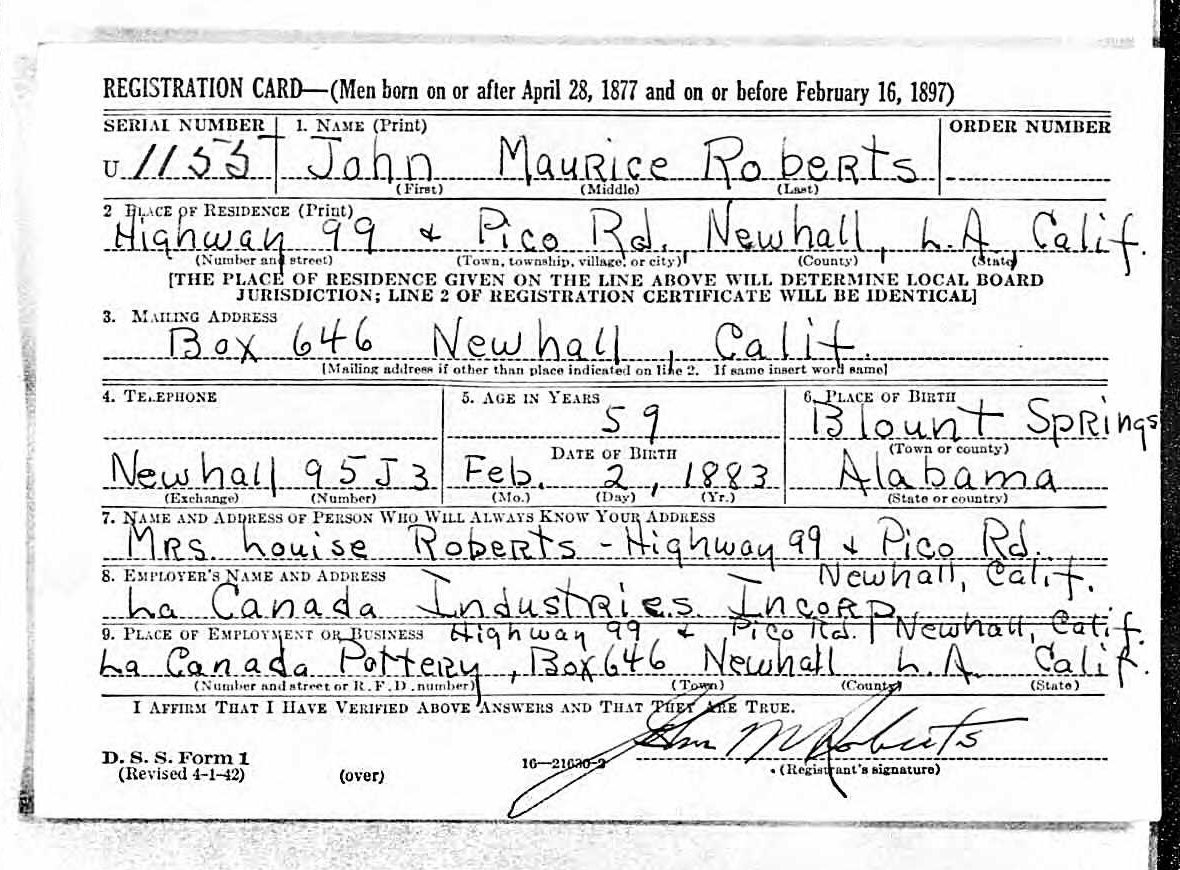 REGISTRATION CARD—(Men born on or after April 28, 1877 and on or before February 16, 1897)
SERIAL NUMBER 1. NAME (Print) ORDER NUMBER
U 1155 John Maurice Roberts
(First) (Middle) (Last)
2 PLACE OF RESIDENCE (Print)
Highway 99 & Pico Rd. Newhall, L.A. Calif.
(Number and street) (Town, township, village, or city) (County) (State)
[THE PLACE OF RESIDENCE GIVEN ON THE LINE ABOVE WILL DETERMINE LOCAL BOARD
JURISDICTION; LINE 2 OF REGISTRATION CERTIFICATE WILL BE IDENTICAL]
3. MAILING ADDRESS
Box 646 Newhall, Calif.
[Mailing address if other than place indicated on line 2. If same insert word same]
4. TELEPHONE 5. AGE IN YEARS 6. PLACE OF BIRTH
59 Blount Springs
DATE OF BIRTH (Town or county)
Newhall 95J3 Feb. 2, 1883 Alabama
(Exchange) (Number) (Mo.) (Day) (Yr.) (State or country)
7. NAME AND ADDRESS OF PERSON WHO WILL ALWAYS KNOW YOUR ADDRESS
Mrs. Louise Roberts - Highway 99 & Pico Rd.
8. EMPLOYER'S NAME AND ADDRESS Newhall, Calif.
La Canada Industries Incorp
9. PLACE OF EMPLOYMENT OR BUSINESS Highway 99 & Pico Rd. Newhall, Calif.
La Canada Pottery, Box 646 Newhall L.A. Calif.
(Number and street or R. F. D. number) (Town) (County) (State)
I AFFIRM THAT I HAVE VERIFIED ABOVE ANSWERS AND THAT THEY ARE TRUE.
John M Roberts
D. S. S. Form 1 16—21630-2
(Revised 4-1-42) (over) (Registrant's signature)